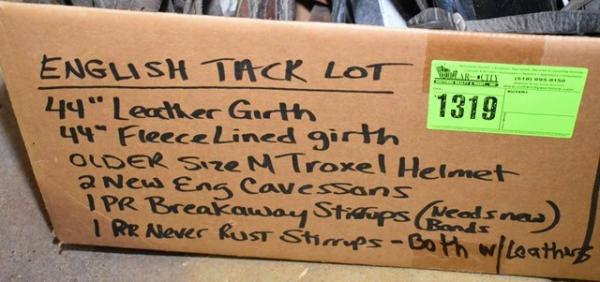 ENGLISH TACK LOT
44" Leather Girth
44" Fleece Lined girth
OLDER Size M Troxel Helmet
2 New Eng Cavessons
1 PR Breakaway Stirrups (Needs new Bands)
1 PR Never Rust Stirrups - Both w/ Leathers
(518) 895-8150
1319